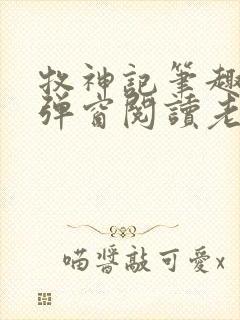 牧神記筆趣
弹窗閱讀老
喵醬敲可愛x